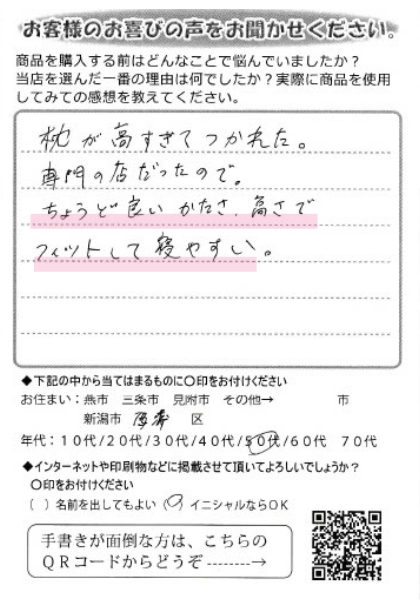 お客様のお喜びの声をお聞かせください。
商品を購入する前はどんなことで悩んでいましたか？
当店を選んだ一番の理由は何でしたか？実際に商品を使用
してみての感想を教えてください。
枕が高すぎてつかれた。
専門の店だったので。
ちょうど良いかたさ、高さで
フィットして寝やすい。
◆下記の中から当てはまるものに○印をお付けください
お住まい：燕市　三条市　見附市　その他→　　　　市
新潟市　　　　区
年代：10代/20代/30代/40代/50代/60代　70代
◆インターネットや印刷物などに掲載させて頂いてよろしいでしょうか？
○印をお付けください
（　）名前を出してもよい（○）イニシャルならOK
手書きが面倒な方は、こちらの
QRコードからどうぞ--------→